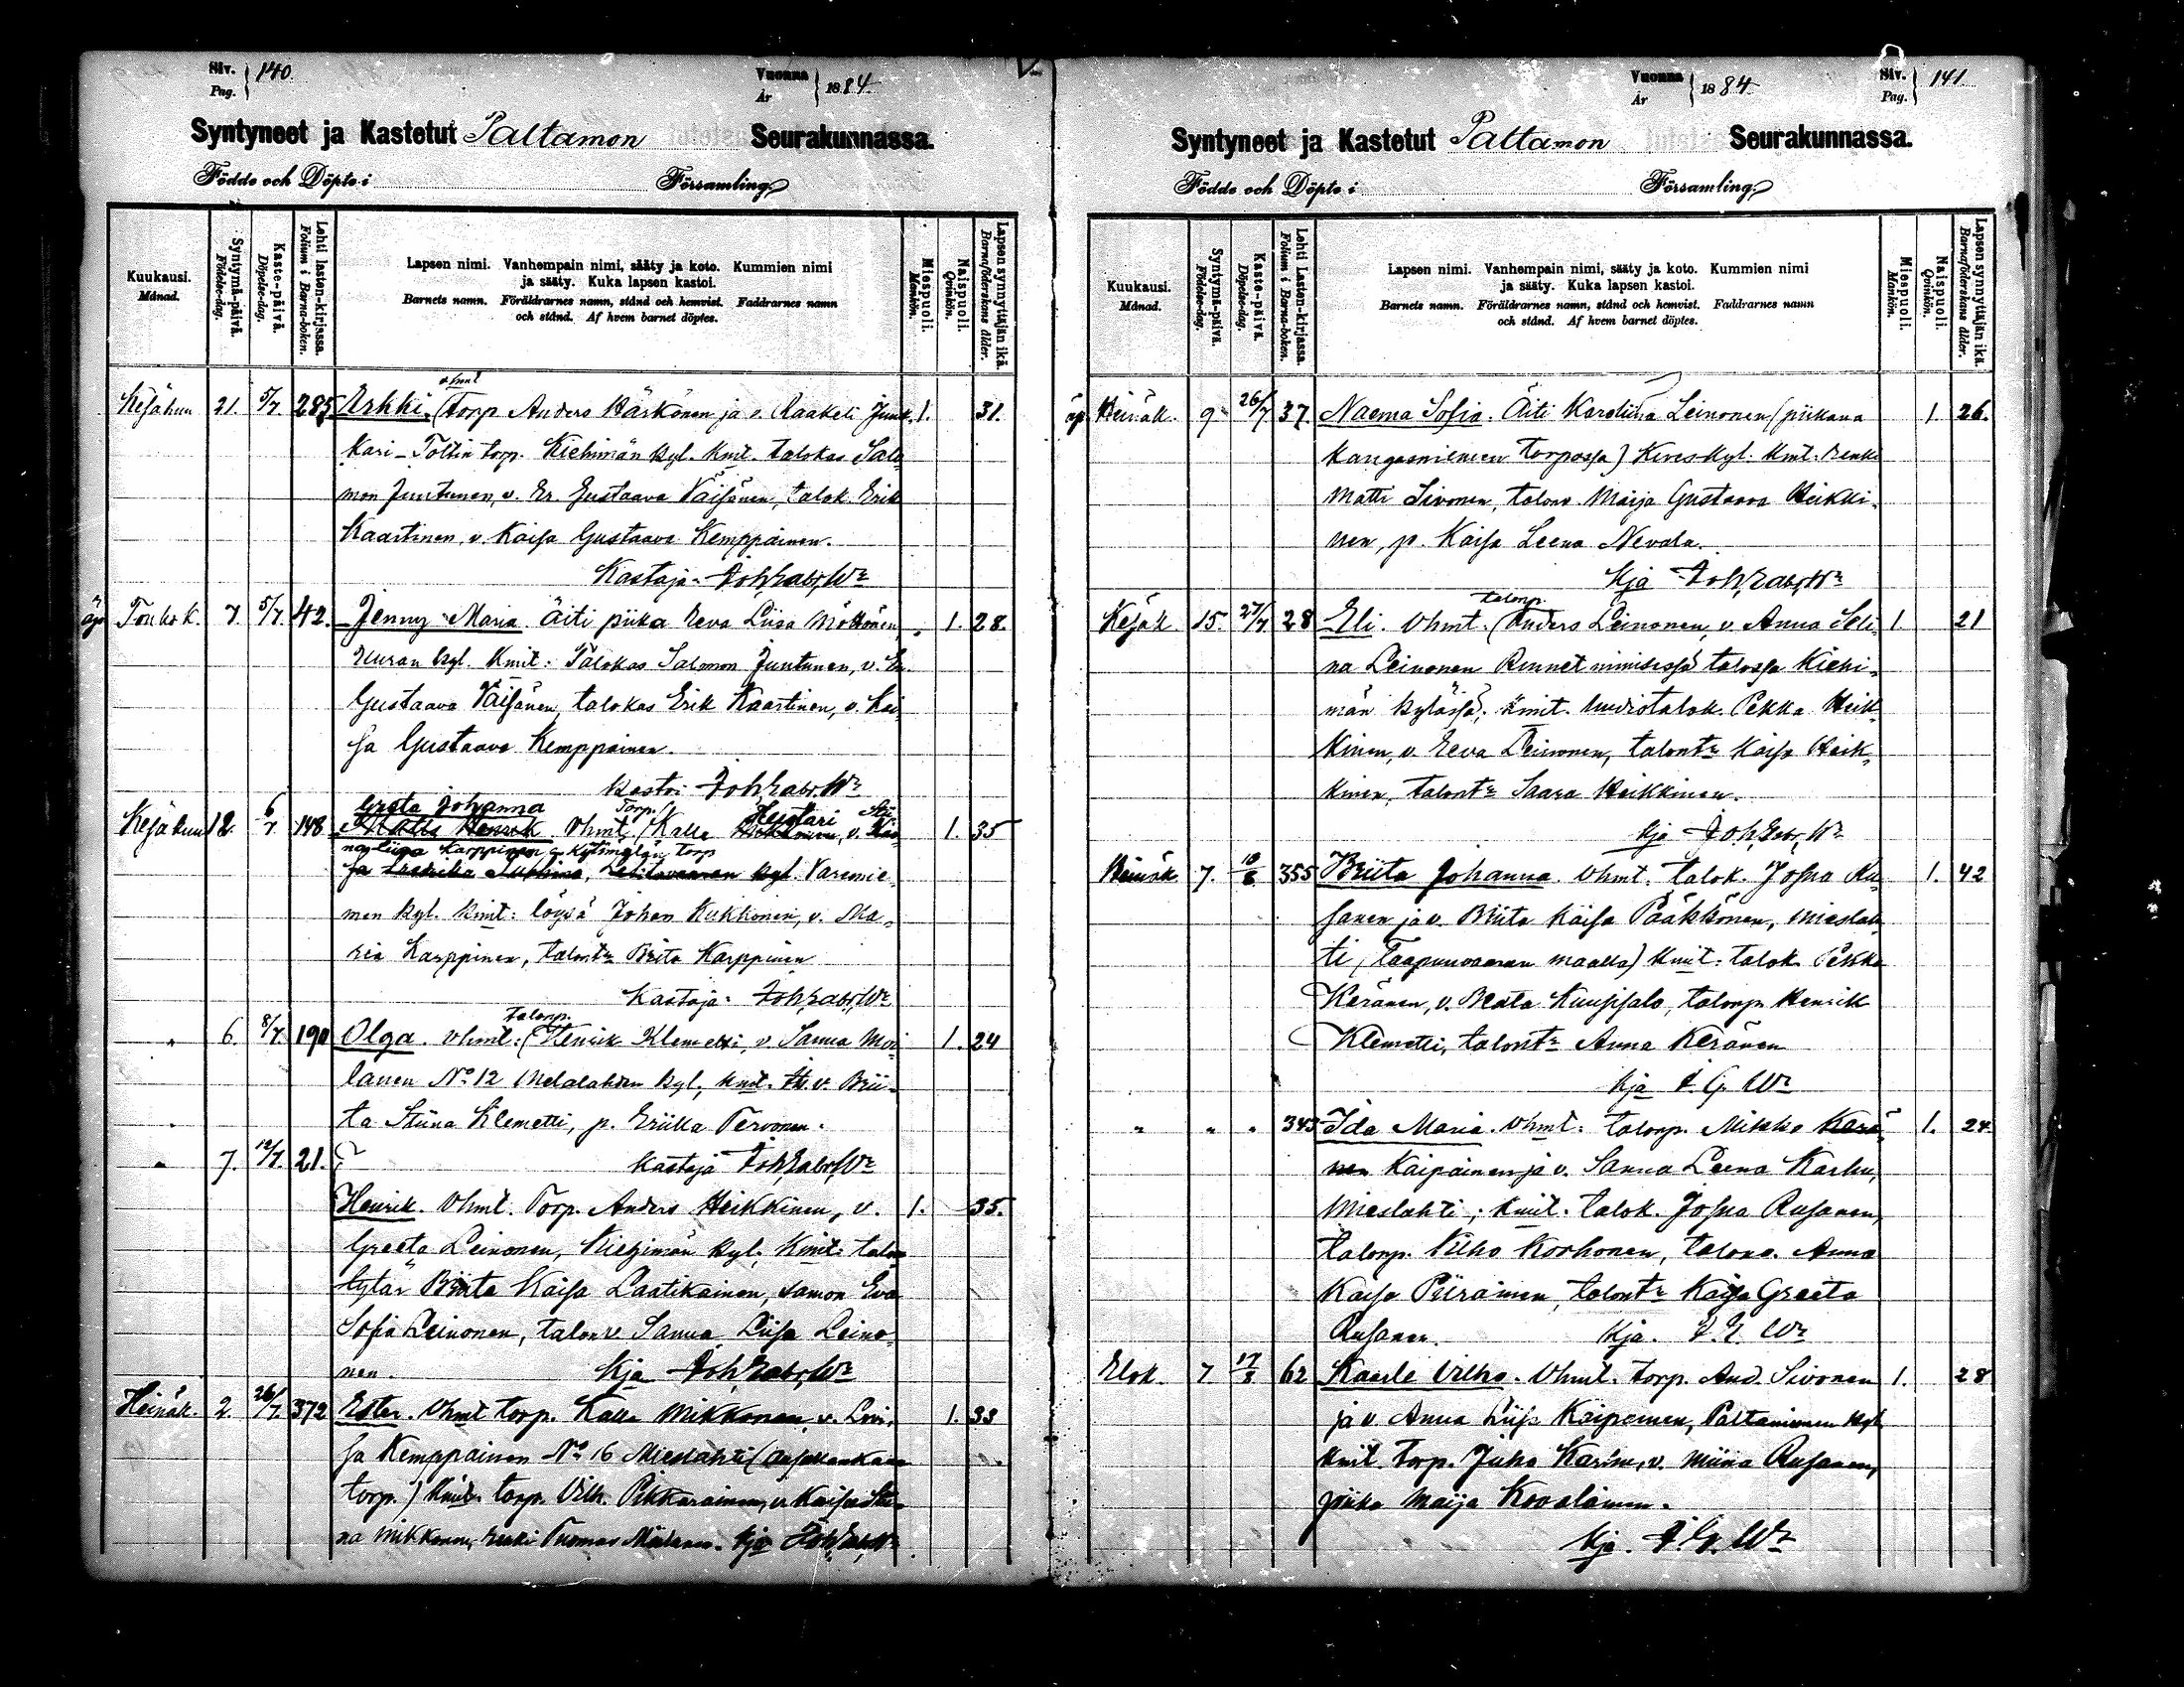 Siv. Pag. 140
Vuonna År 1884
Syntyneet ja Kastetut Paltamon Seurakunnassa.
Födde och Döpte i Församling
Kuukausi. Månad.
Syntymä-päivä. Födelse-dag.
Kaste-päivä. Döpelse-dag.
Lehti lasten-kirjassa. Folium i Barna-boken.
Lapsen nimi. Vanhempain nimi, sääty ja koto. Kummien nimi
ja sääty. Kuka lapsen kastoi.
Barnets namn. Föräldrarnes namn, stånd och hemvist. Faddrarnes namn
och stånd. Af hvem barnet döptes.
Miespuoli. Mankön.
Naispuoli. Qvinkön.
Lapsen synnyttäjän ikä. Barnaföderskans ålder.
vhmt
Kesäkuu 21. 5/7 285 Erkki. (Torp Anders Härkönen ja v. Raakeli Junt- 1. 31.
kari Kiehimän kyl. Kmt. talokas Salo-
mon Juntunen, v. Er. Gustaava Väisänen, talok. Erik
Kaartinen, v. Kaisa Gustaava Kemppainen.
Kastaja
äp. Toukok. 7. 5/7. 42. Jenny Maria. Äiti piika Eeva Liisa Möttönen, 1. 28.
Uuran kyl. Kmit: Talokas Salomon Juntunen, v. Er.
Gustaava Väisänen, talokas Erik Kaartinen, v. Kai-
sa Gustaava Kemppainen.
Kastoi
Greta Johanna Torp. Huotari Stii-
Kesäkuu 12. 6/7 148 Matts Henrik. Vhmt. (Kalle v. 1. 35
na Liisa Karppinen torp
kyl. Varisnie-
men kyl. kmt: löysä Johan Kukkonen, v. Ma-
ria Karppinen, talontr Brita Karppinen
Kastaja
talonp.
" 6. 8/7. 190 Olga. vhmt: (Henrik Klemetti, v. Sanna Moi- 1. 24
lanen No 12 Melalahden kyl. kmt. v. Brii-
ta Stiina Klemetti, p. Eriikka Tervonen.
" 7. 12/7. 21. Kastaja
Henrik. Vhmt. Torp. Anders Heikkinen, v. 1. 35.
Greeta Leinonen, Kiehimän kyl. Kmt: talon
tytär Briita Kaisa Laatikainen, samon Eva
Sofia Leinonen, talonv Sanna Liisa Leino-
nen. Kja
Heinäk. 2. 26/7. 372 Ester. Vhmt torp. Kalle Mikkonen, v. Lovi- 1. 33
sa Kemppainen No 16 Mieslahti
torp.) Kmt. torp. Vilh. Pikkarainen, v. Kaisa Stii-
na Mikkonen, renki Tuomas kja
Vuonna År 1884
Siv. Pag. 141.
Syntyneet ja Kastetut Paltamon Seurakunnassa.
Födde och Döpte i Församling
Kuukausi. Månad.
Syntymä-päivä. Födelse-dag.
Kaste-päivä. Döpelse-dag.
Lehti Lasten-kirjassa. Folium i Barna-boken.
Lapsen nimi. Vanhempain nimi, sääty ja koto. Kummien nimi
ja sääty. Kuka lapsen kastoi.
Barnets namn. Föräldrarnes namn, stånd och hemvist. Faddrarnes namn
och stånd. Af hvem barnet döptes.
Miespuoli. Mankön.
Naispuoli. Qvinkön.
Lapsen synnyttäjän ikä. Barnaföderskans ålder.
äp. Heinäk. 9 26/7 37. Naema Sofia. Äiti Karoliina Leinonen (piikana 1. 26.
Kangasniemen torpassa) Kmt: renki
Matti Sivonen, talonv. Maija Gustaava Heikki-
nen, p. Kaisa Leena Nevala.
Kja
talonp.
Kesäk. 15. 27/7 28 Eli. Vhmt. (Anders Leinonen, v. Anna Seli- 1 21
na Leinonen Runnet nimisessä talossa Kiehi-
män kylässä; kmit. talok. Pekka Heik-
kinen, v. Eeva Leinonen, talontr Kaisa Heik-
kinen, talontr Saara Heikkinen.
kja
Heinäk 7. 10/8 355 Briita Johanna. Vhmt. talok. Josua Ru- 1. 42
sanen ja v. Briita Kaisa Pääkkönen, Mieslah-
ti (Taapunvaaran maalla) kmit: talok. Pekka
Keränen, v. Beata talonp Henrik
Klemetti, talontr Anna Keränen
Kja
" " " 343 Ida Maria. Vhmt: talonp. Mikko Kerä- 1. 24
nen Kaipainen ja v. Sanna Leena Karhu,
Mieslahti; kmit. talok. Josua Rusanen,
talonp. Vilho Korhonen, talonv. Anna
Kaisa Piirainen, talontr Kaisa Greeta
Rusanen. Kja.
Elok. 7 17/8 62 Kaarle Vilho. Vhmt. torp. And. Sivonen 1. 28
ja v Anna Liisa Kaipainen, Paltaniemen kyl
kmit. torp. Juho Karhu, v. Miina Rusanen,
piika Maija Kovalainen.
Kja.